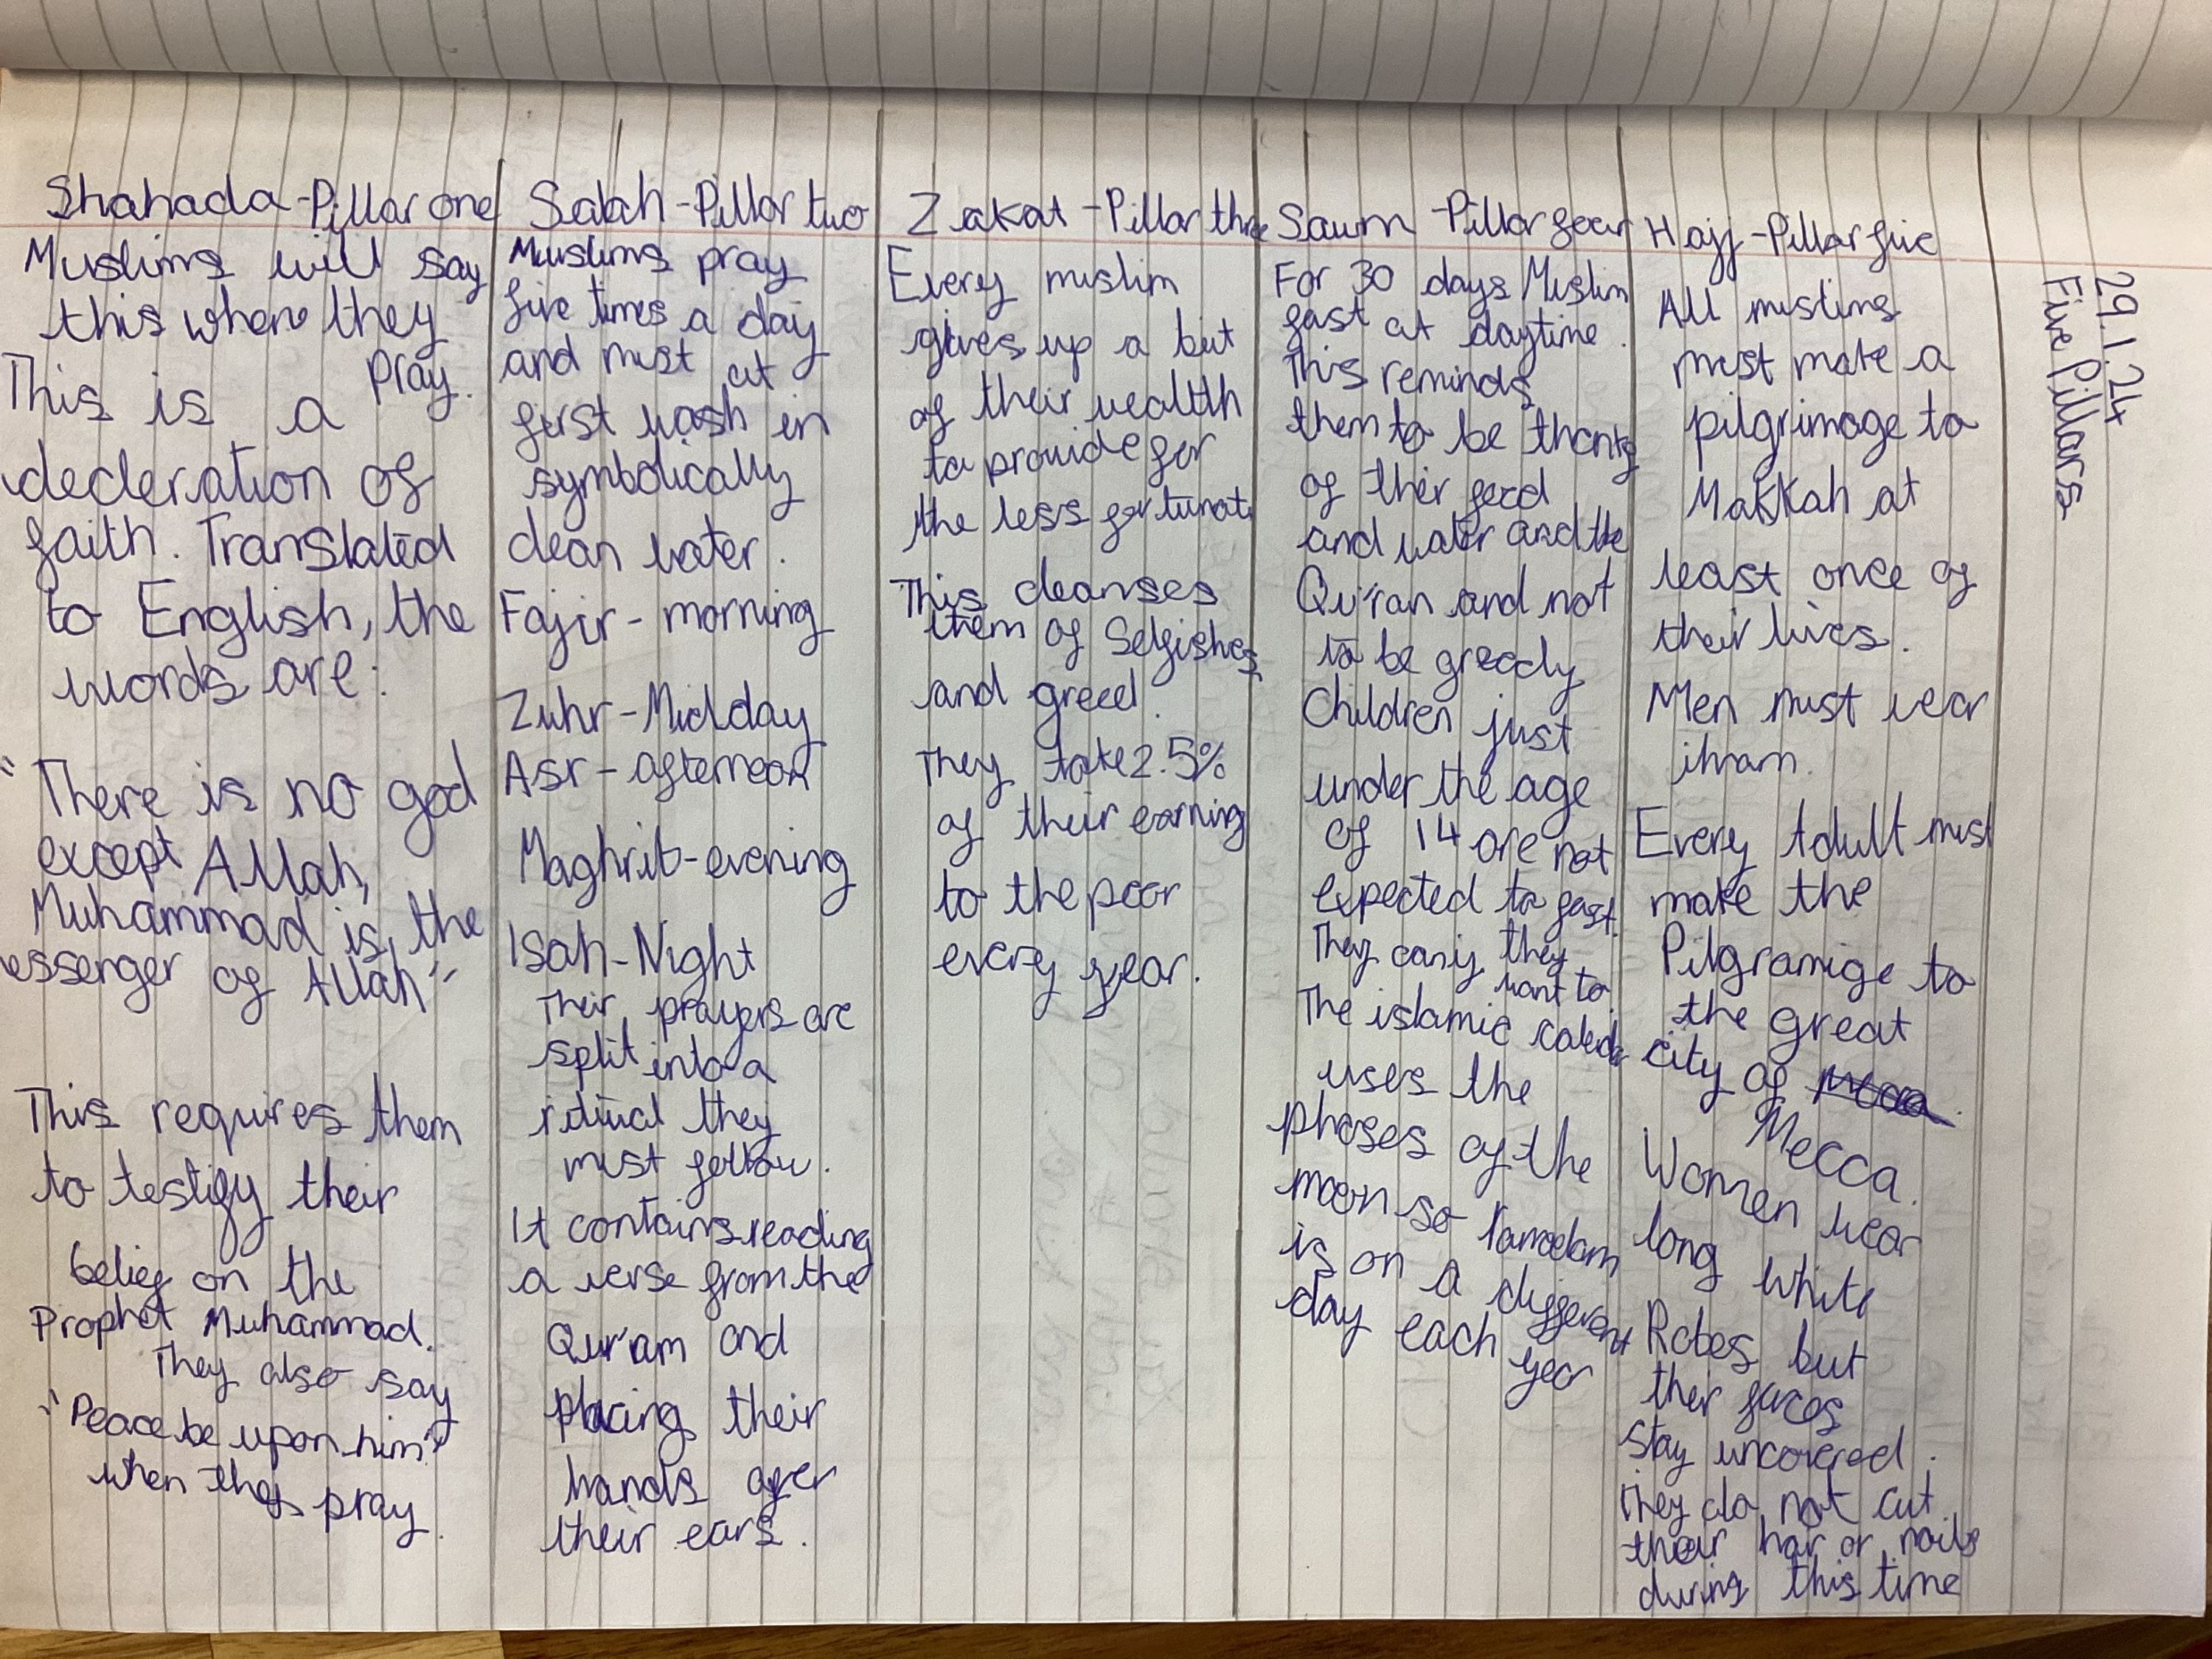 29.1.24
Five Pillars
Shahada - Pillar one
Muslims will say
this where they
pray.
This is a
decleration of
faith. Translated
to English, the
words are:
"There is no god
except Allah,
Muhammad is the
essenger of Allah"
This requires them
to testify their
belief on the
Prophet Muhammad.
They also say
"Peace be upon him"
when they pray.
Salah - Pillar two
Muslims pray
five times a day
and must at
first wash in
symbolically
clean water.
Fajir - morning
Zuhr - Midday
Asr - afternoon
Maghrib - evening
Isah - Night
Their prayers are
split into a
ritual they
must follow.
It contains reading
a verse from the
Qur'am and
placing their
hands over
their ears.
Zakat - Pillar three
Every muslim
gives up a but
of their wealth
to provide for
the less fortunate
This cleanses
them of Selfishes
and greed.
They take 2.5%
of their earning
to the poor
every year.
Sawm - Pillar four
For 30 days Muslim
fast at daytime.
This reminds
them to be
of ther food
and water and the
Qu'ran and not
to be greedy
Children just
under the age
of 14 are not
expected to fast.
They can if they
want to
The islamic
uses the
phases of the
moon so
is on a different
day each
year
Hajj - Pillar five
All muslims
must make a
pilgrimage to
Makkah at
least once of
their lives.
Men must wear
ihram.
Every Adult must
make the
Pilgramige to
the great
city of
Mecca.
Women wear
long white
Robes but
ther faces
stay uncovered.
They do not cut
their har or nails
during this time